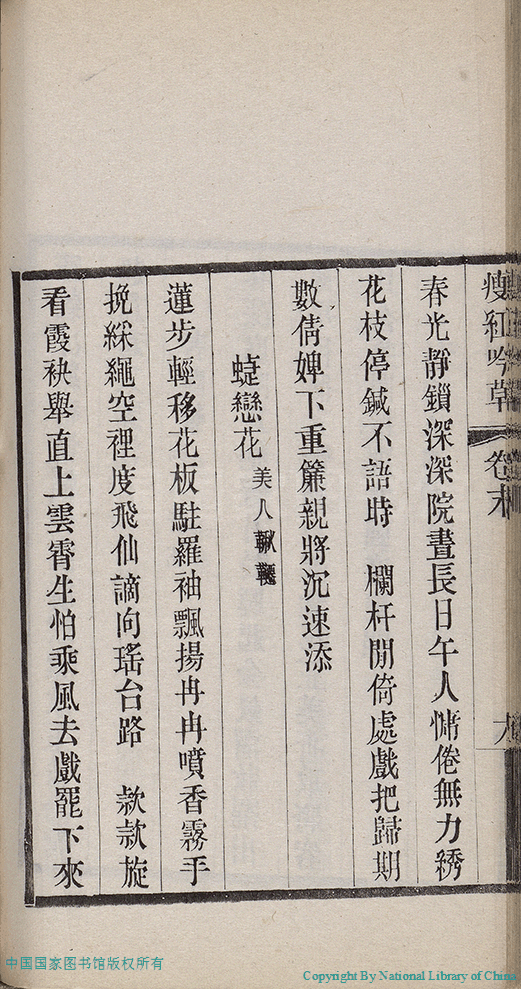 瘦紅吟草　卷末　九
春光靜鎖深深院晝長日午人慵倦無力綉
花枝停鍼不語時　欄杆閒倚處戲把歸期
數倩婢下重簾親將沉速添
蜨戀花美人鞦韆
蓮步輕移花板駐羅袖飄揚冉冉噴香霧手
挽綵繩空裡度飛仙謫向瑤台路　款款旋
看霞袂舉直上雲霄生怕乘風去戲罷下來
中国国家图书馆版权所有
Copyright By National Library of China